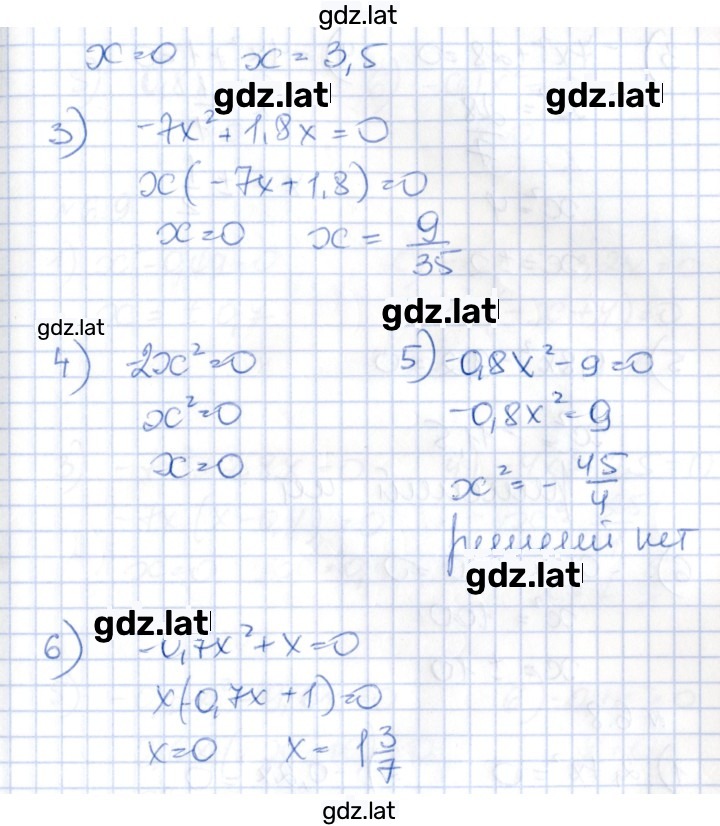 gdz.lat
x=0 x = 3,5
gdz.lat gdz.lat
3) -7x²+1,8x=0
x(-7x+1,8)=0
x=0 x = 9/35
gdz.lat
gdz.lat
4) -2x²=0
x²=0
x=0
5) -0,8x²-9=0
-0,8x²=9
x²= - 45/4
решений нет
gdz.lat
gdz.lat
6) -0,7x²+x=0
x(-0,7x+1)=0
x=0 x= 1 3/7
gdz.lat